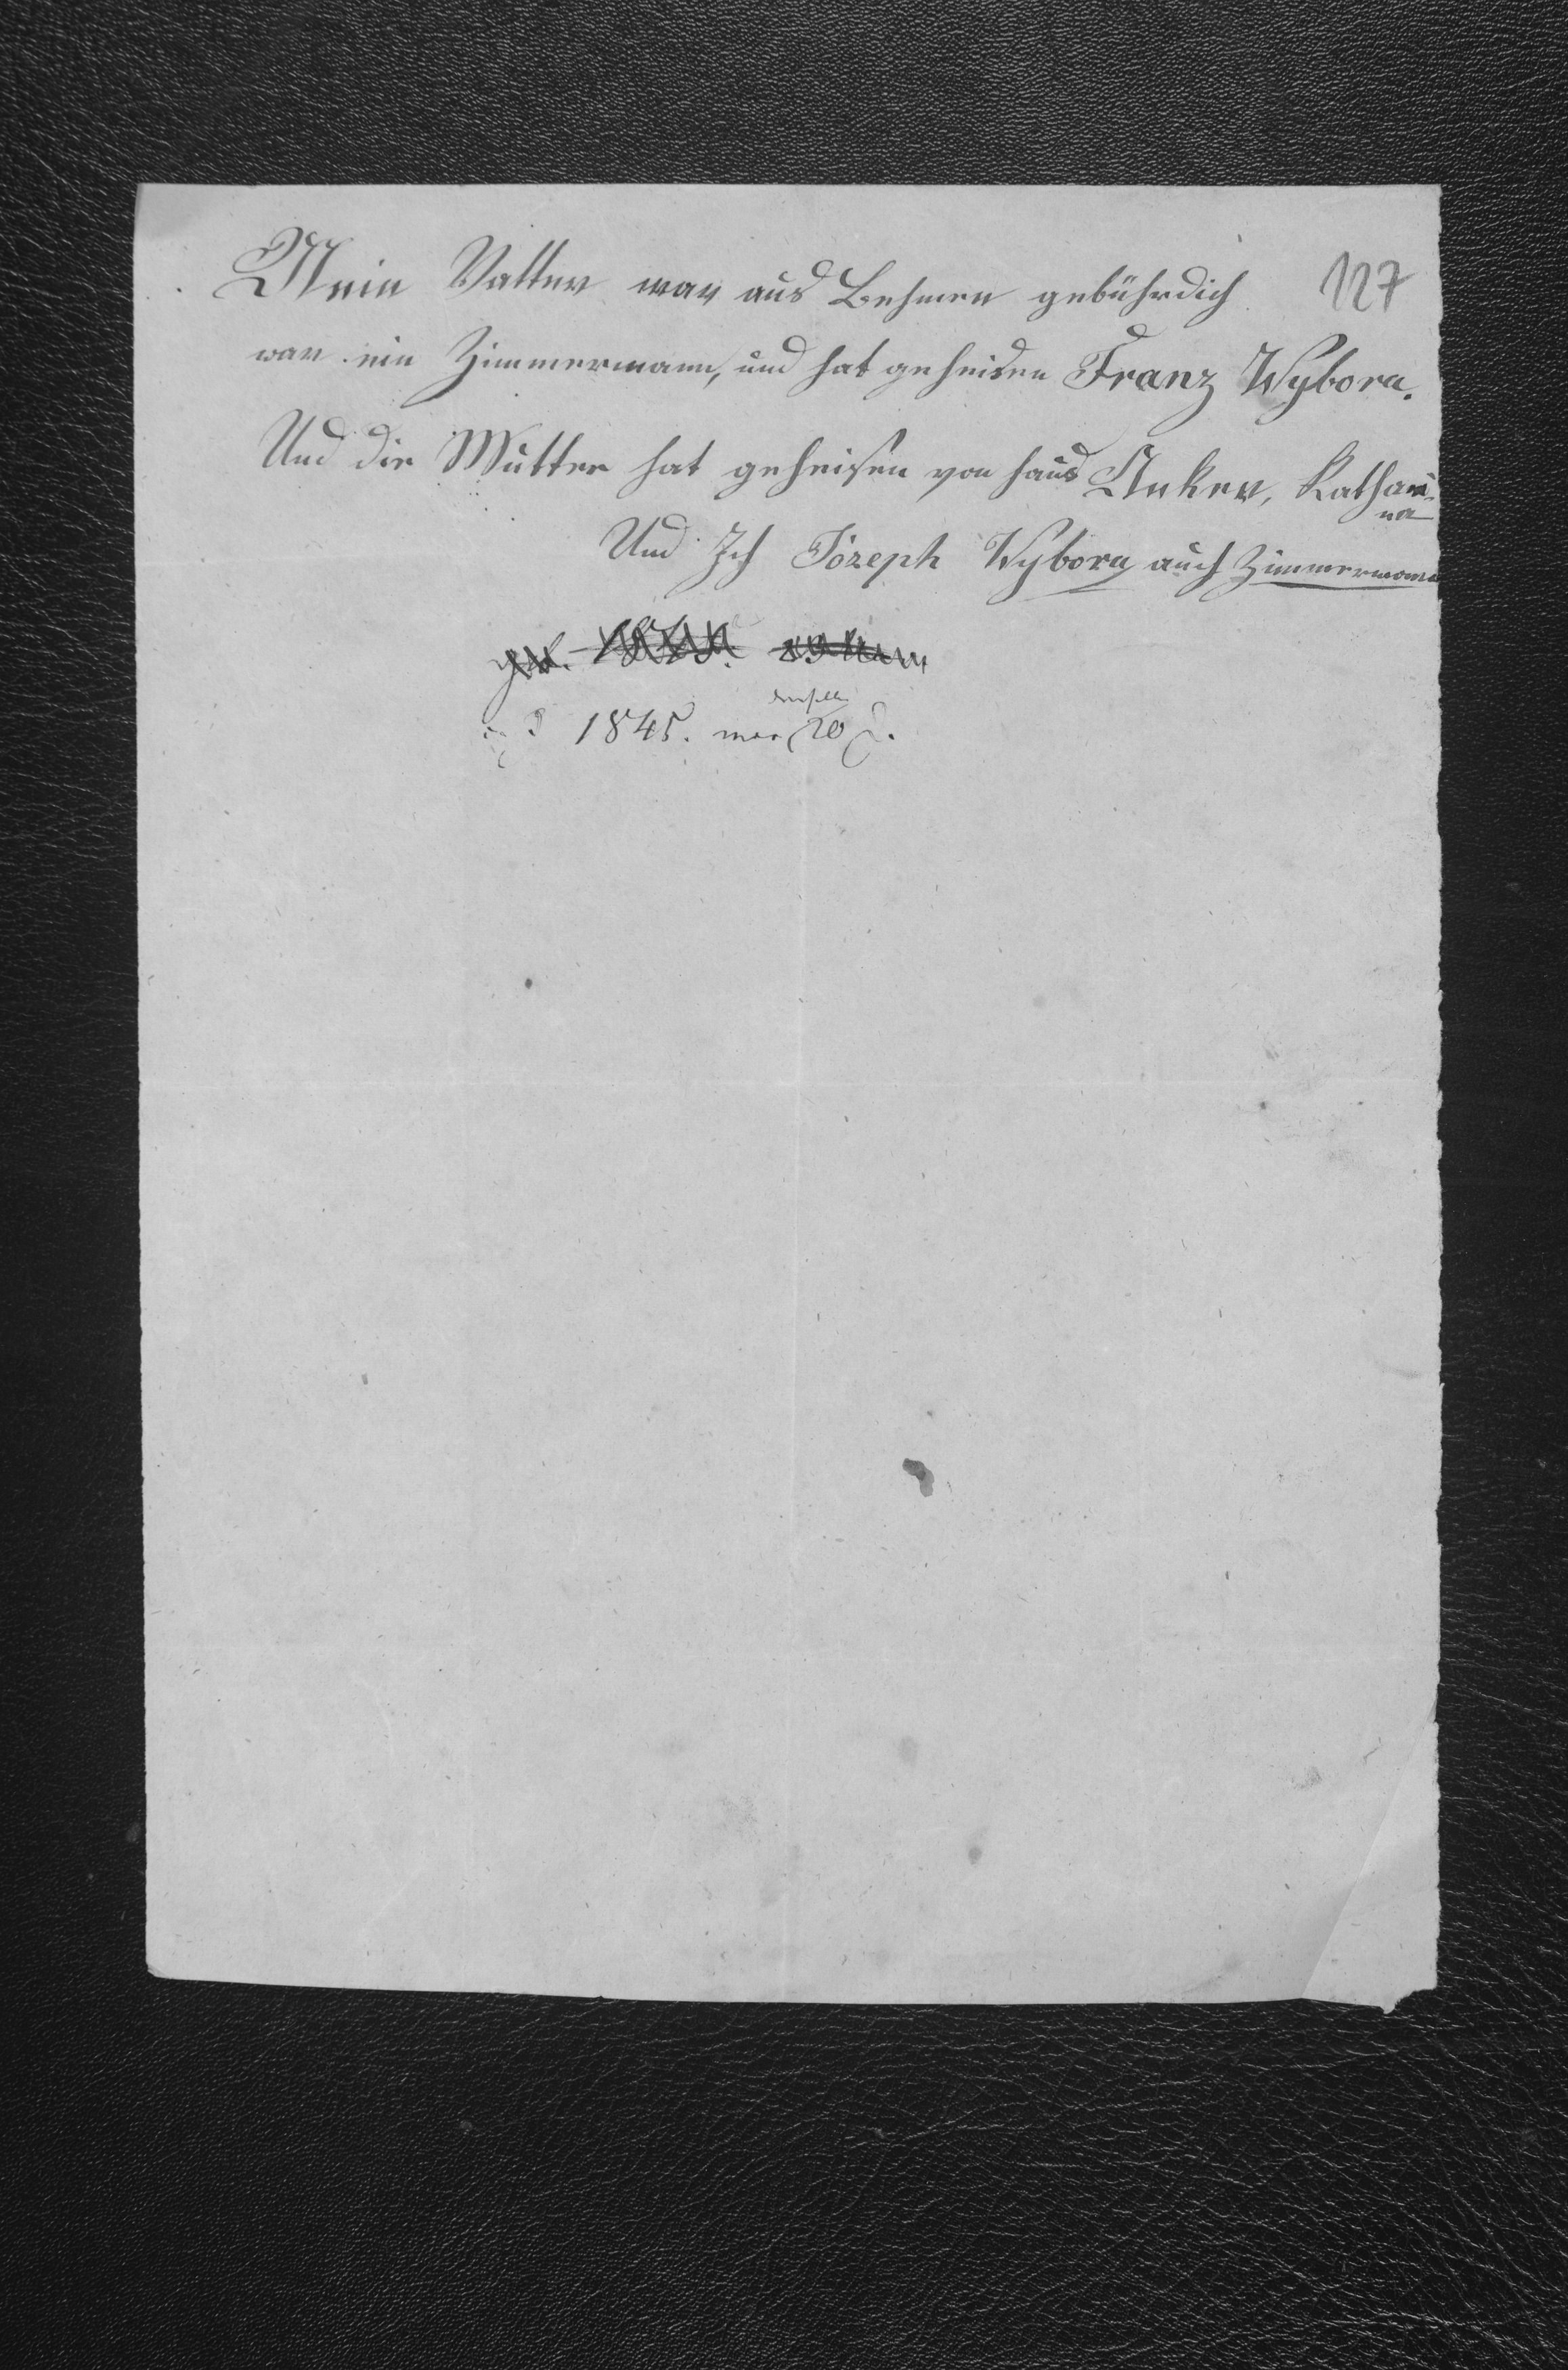 127
Mein Vatter war aus Behmen gebührdich
war ein Zimmermann, und hat geheisen Franz Wybora.
Und die Mutter hat geheisen von haus Anker, Kathari-
na
Und Ich Jozeph Wybora auch Zimmermann
1845. war 20 J.